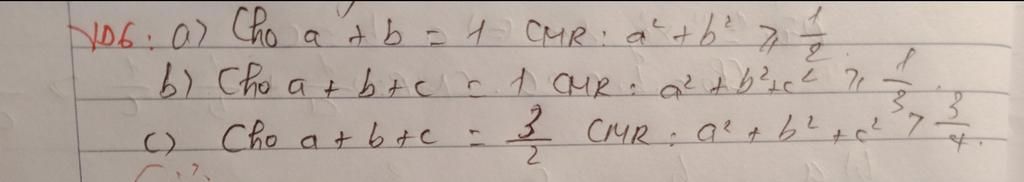 VD6: a) Cho a + b = 1 CMR: a² + b² ≥ 1/2
b) Cho a + b + c = 1 CMR: a² + b² + c² ≥ 1/3.
c) Cho a + b + c = 3/2 CMR: a² + b² + c² > 3/4.